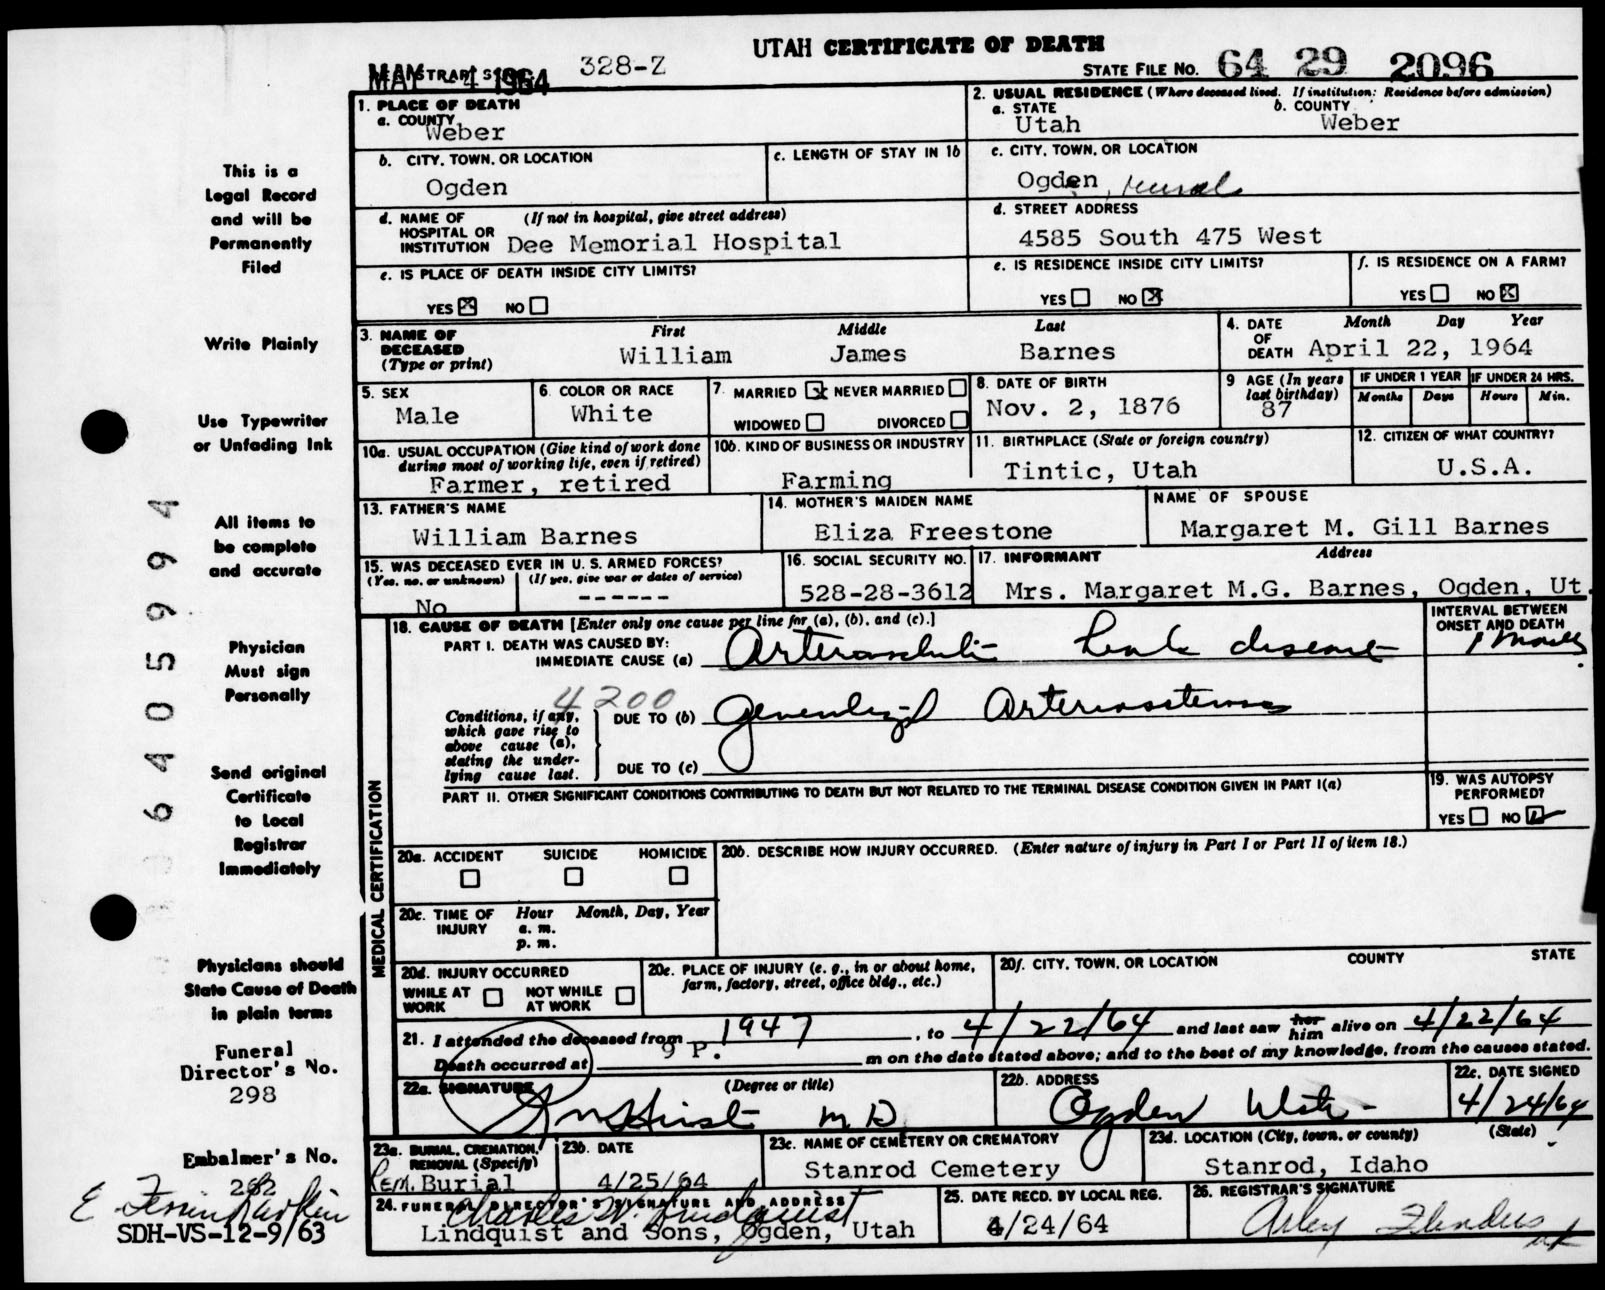 UTAH CERTIFICATE OF DEATH
MAY -4 1964
328-Z
STATE FILE NO. 64 29 2096
1. PLACE OF DEATH
a. COUNTY
Weber
2. USUAL RESIDENCE (Where deceased lived. If institution: Residence before admission)
a. STATE
b. COUNTY
Utah
Weber
b. CITY, TOWN, OR LOCATION
Ogden
c. LENGTH OF STAY IN 1b
c. CITY, TOWN, OR LOCATION
Ogden, rural
d. NAME OF (If not in hospital, give street address)
HOSPITAL OR
INSTITUTION Dee Memorial Hospital
d. STREET ADDRESS
4585 South 475 West
e. IS PLACE OF DEATH INSIDE CITY LIMITS?
YES ☒ NO ☐
e. IS RESIDENCE INSIDE CITY LIMITS?
YES ☐ NO ☒
f. IS RESIDENCE ON A FARM?
YES ☐ NO ☒
3. NAME OF
DECEASED
(Type or print)
First Middle Last
William James Barnes
4. DATE
OF
DEATH
Month Day Year
April 22, 1964
5. SEX
Male
6. COLOR OR RACE
White
7. MARRIED ☒ NEVER MARRIED ☐
WIDOWED ☐ DIVORCED ☐
8. DATE OF BIRTH
Nov. 2, 1876
9 AGE (In years
last birthday)
87
IF UNDER 1 YEAR
Months Days
IF UNDER 24 HRS.
Hours Min.
10a. USUAL OCCUPATION (Give kind of work done
during most of working life, even if retired)
Farmer, retired
10b. KIND OF BUSINESS OR INDUSTRY
Farming
11. BIRTHPLACE (State or foreign country)
Tintic, Utah
12. CITIZEN OF WHAT COUNTRY?
U.S.A.
13. FATHER'S NAME
William Barnes
14. MOTHER'S MAIDEN NAME
Eliza Freestone
NAME OF SPOUSE
Margaret M. Gill Barnes
15. WAS DECEASED EVER IN U. S. ARMED FORCES?
(Yes, no, or unknown) (If yes, give war or dates of service)
No ------
16. SOCIAL SECURITY NO.
528-28-3612
17. INFORMANT Address
Mrs. Margaret M.G. Barnes, Ogden, Ut.
MEDICAL CERTIFICATION
18. CAUSE OF DEATH [Enter only one cause per line for (a), (b), and (c).]
INTERVAL BETWEEN
ONSET AND DEATH
PART I. DEATH WAS CAUSED BY:
IMMEDIATE CAUSE (a) disease
4200
Conditions, if any,
which gave rise to
above cause (a),
stating the under-
lying cause last.
DUE TO (b)
DUE TO (c)
PART II. OTHER SIGNIFICANT CONDITIONS CONTRIBUTING TO DEATH BUT NOT RELATED TO THE TERMINAL DISEASE CONDITION GIVEN IN PART I(a)
19. WAS AUTOPSY
PERFORMED?
YES ☐ NO ☑
20a. ACCIDENT SUICIDE HOMICIDE
☐ ☐ ☐
20b. DESCRIBE HOW INJURY OCCURRED. (Enter nature of injury in Part I or Part II of item 18.)
20c. TIME OF Hour Month, Day, Year
INJURY a. m.
p. m.
20d. INJURY OCCURRED
WHILE AT ☐ NOT WHILE ☐
WORK AT WORK
20e. PLACE OF INJURY (e. g., in or about home,
farm, factory, street, office bldg., etc.)
20f. CITY, TOWN, OR LOCATION COUNTY STATE
21. I attended the deceased from 1947, to 4/22/64 and last saw her him alive on 4/22/64
Death occurred at 9 P. m on the date stated above; and to the best of my knowledge, from the causes stated.
22a. SIGNATURE (Degree or title)
Hirst M.D.
22b. ADDRESS
Ogden Utah
22c. DATE SIGNED
4/24/64
23a. BURIAL, CREMATION,
REMOVAL (Specify)
Rem. Burial
23b. DATE
4/25/64
23c. NAME OF CEMETERY OR CREMATORY
Stanrod Cemetery
23d. LOCATION (City, town, or county) (State)
Stanrod, Idaho
24. FUNERAL DIRECTOR'S SIGNATURE AND ADDRESS
Charles W. Lindquist
Lindquist and Sons, Ogden, Utah
25. DATE RECD. BY LOCAL REG.
4/24/64
26. REGISTRAR'S SIGNATURE
Arley Flinders
This is a
Legal Record
and will be
Permanently
Filed
Write Plainly
Use Typewriter
or Unfading Ink
All items to
be complete
and accurate
Physician
Must sign
Personally
Send original
Certificate
to Local
Registrar
Immediately
Physicians should
State Cause of Death
in plain terms
Funeral
Director's No.
298
Embalmer's No.
262
SDH-VS-12-9/63
6405994